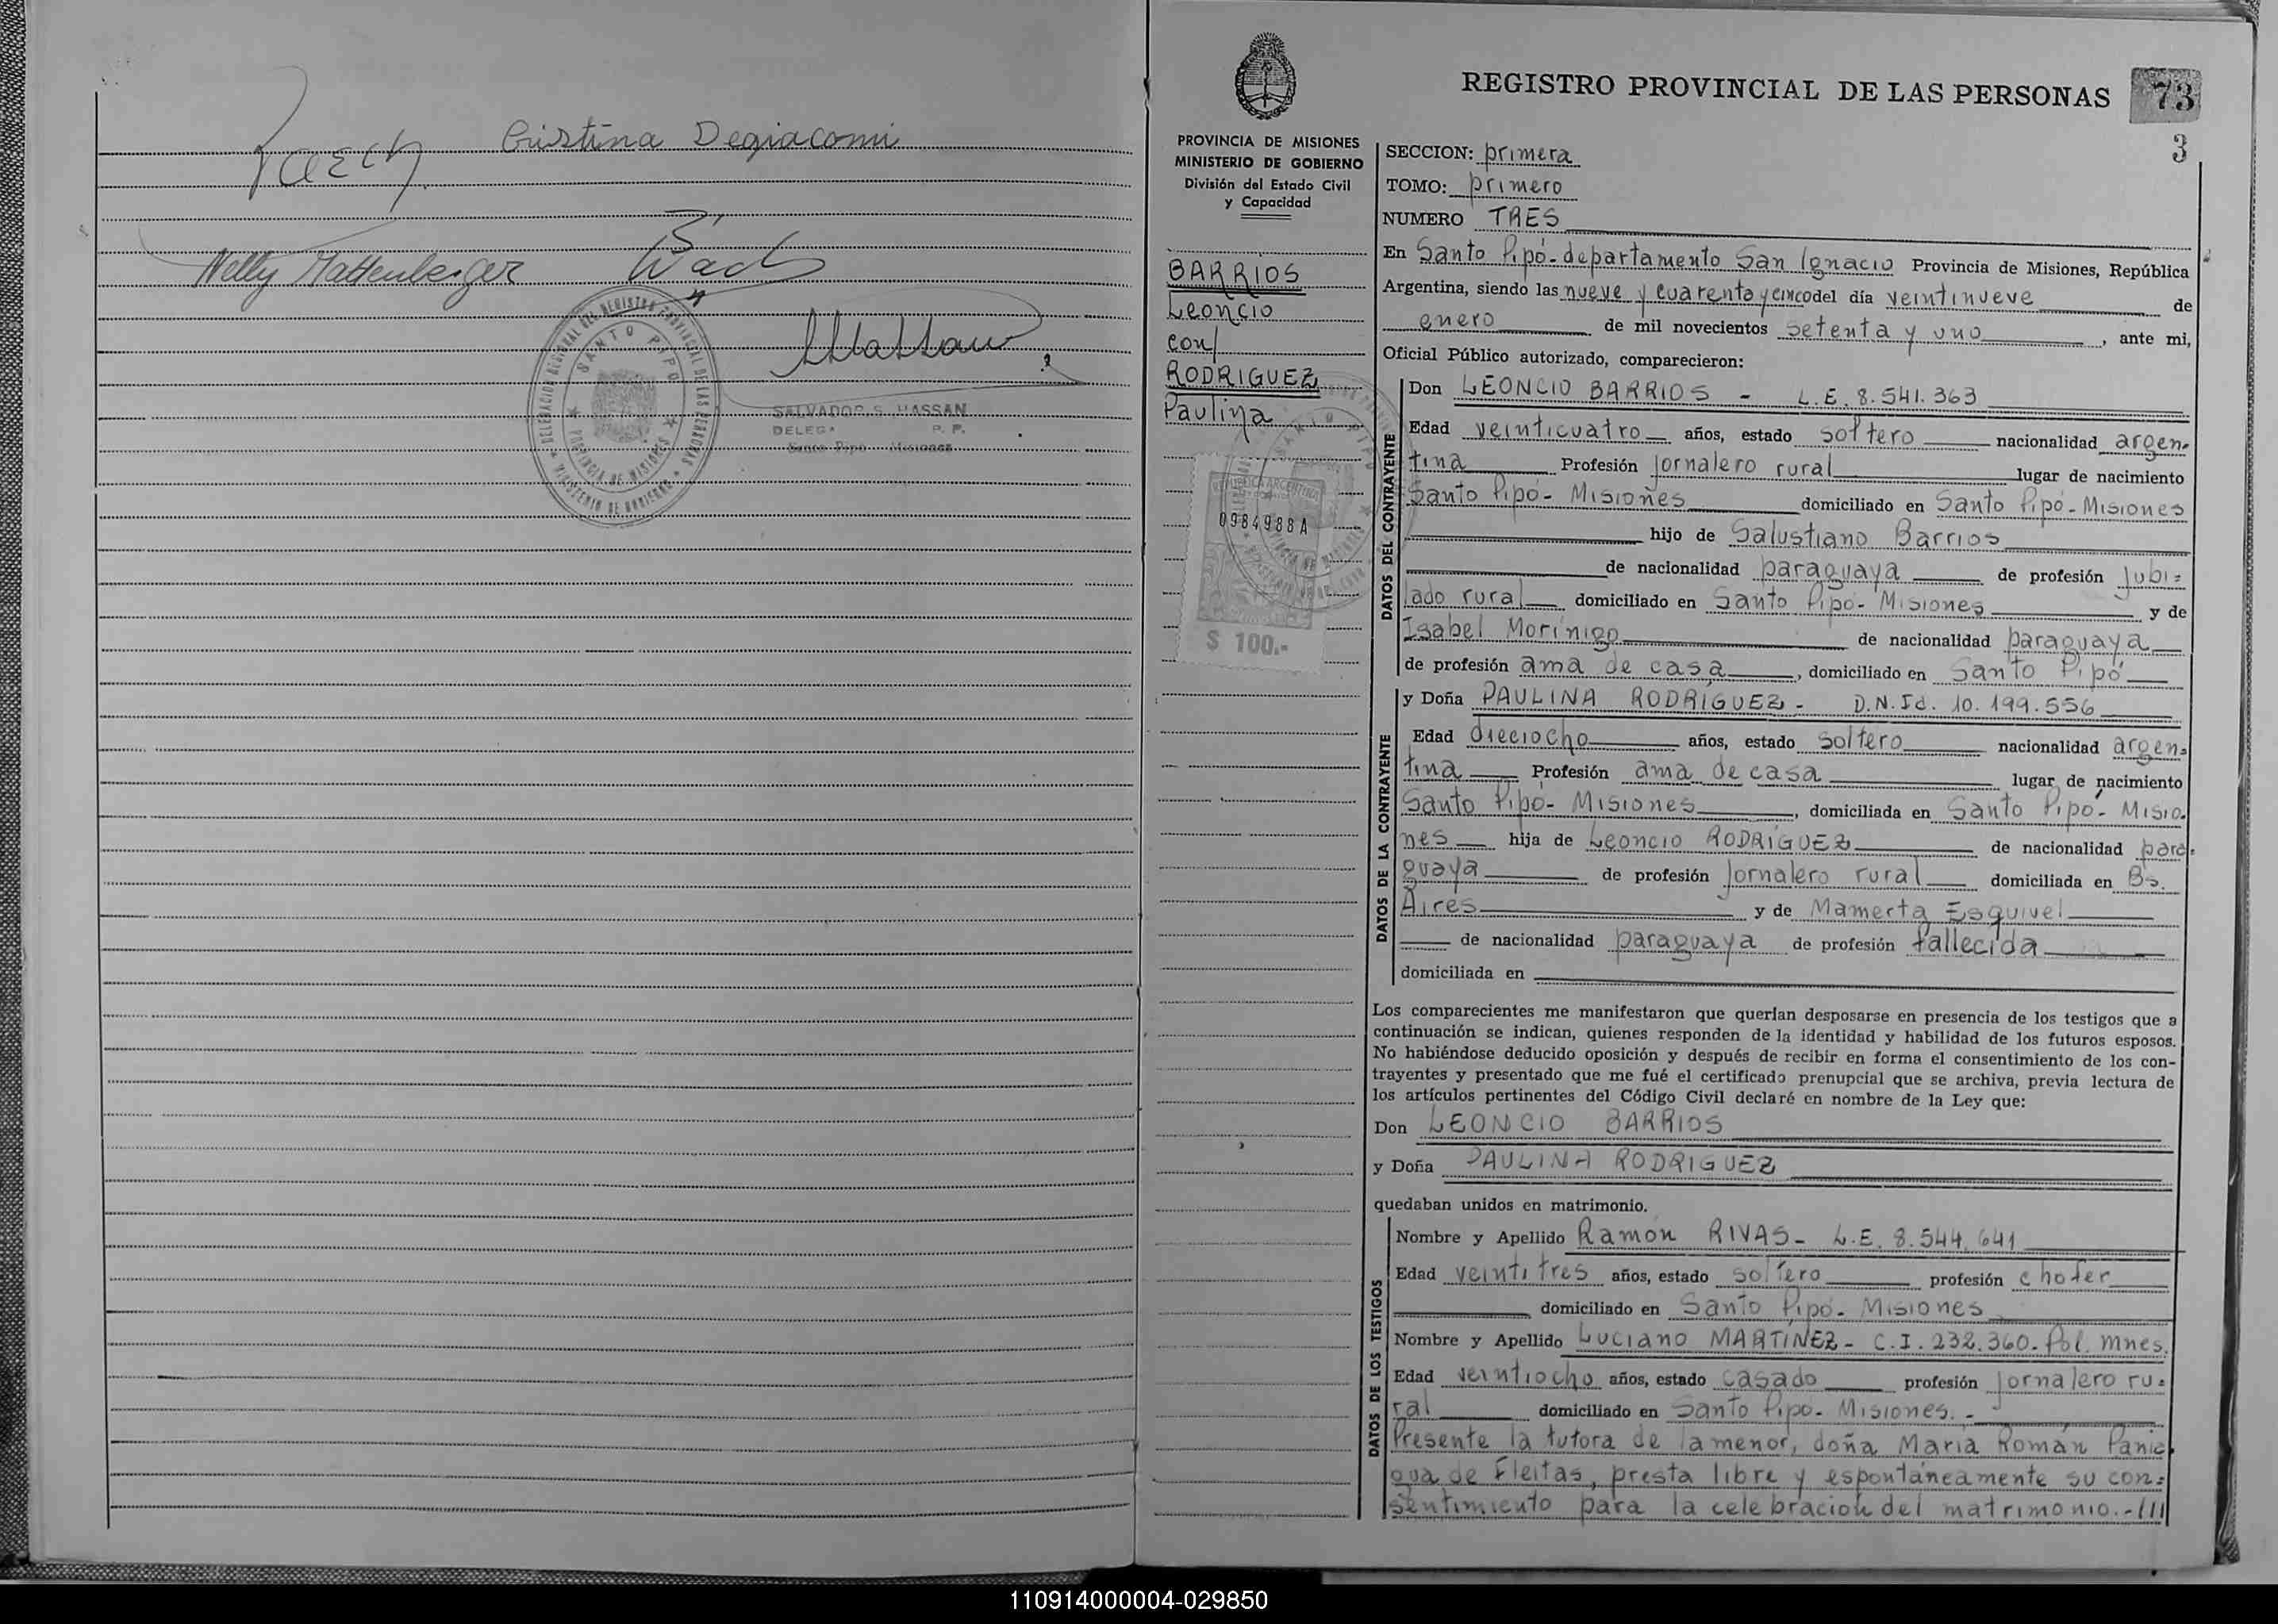 Cristina Degiacomi
Nelly Mattenberger
DELEGACIO REGIONAL DEL REGISTRO PROVINCIAL DE LAS PERSONAS
SANTO PIPO
PROVINCIA DE MISIONES
MINISTERIO DE GOBIERNO
SALVADOR S. HASSAN
DELEG. R. P.
Santo Pipó Misiones
REGISTRO PROVINCIAL DE LAS PERSONAS
73
3
PROVINCIA DE MISIONES
MINISTERIO DE GOBIERNO
División del Estado Civil
y Capacidad
BARRIOS
Leoncio
con/
RODRIGUEZ
Paulina
REPUBLICA ARGENTINA
0984988 A
$ 100.-
SECCION: primera
TOMO: primero
NUMERO TRES
En Santo Pipó-departamento San Ignacio Provincia de Misiones, República
Argentina, siendo las nueve y cuarenta y cinco del día veintinueve de
enero de mil novecientos setenta y uno, ante mi,
Oficial Público autorizado, comparecieron:
DATOS DEL CONTRAYENTE
Don LEONCIO BARRIOS - L.E. 8.541.363
Edad veinticuatro años, estado soltero nacionalidad argen=
tina Profesión jornalero rural lugar de nacimiento
Santo Pipó- Misiones domiciliado en Santo Pipó- Misiones
hijo de Salustiano Barrios
de nacionalidad paraguaya de profesión jubi=
lado rural domiciliado en Santo Pipó- Misiones y de
Isabel Morínigo de nacionalidad paraguaya
de profesión ama de casa, domiciliado en Santo Pipó
DATOS DE LA CONTRAYENTE
y Doña PAULINA RODRIGUEZ - D.N.Id. 10.199.556
Edad dieciocho años, estado soltero nacionalidad argen=
tina Profesión ama de casa lugar de nacimiento
Santo Pipó- Misiones, domiciliada en Santo Pipó- Misio=
nes hija de Leoncio RODRIGUEZ de nacionalidad para=
guaya de profesión jornalero rural domiciliada en Bs.
Aires y de Mamerta Esquivel
de nacionalidad paraguaya de profesión fallecida
domiciliada en
Los comparecientes me manifestaron que querían desposarse en presencia de los testigos que a
continuación se indican, quienes responden de la identidad y habilidad de los futuros esposos.
No habiéndose deducido oposición y después de recibir en forma el consentimiento de los con-
trayentes y presentado que me fué el certificado prenupcial que se archiva, previa lectura de
los artículos pertinentes del Código Civil declaré en nombre de la Ley que:
Don LEONCIO BARRIOS
y Doña PAULINA RODRIGUEZ
quedaban unidos en matrimonio.
DATOS DE LOS TESTIGOS
Nombre y Apellido Ramón RIVAS- L.E. 8.544.641
Edad veintitres años, estado soltero profesión chofer
domiciliado en Santo Pipó- Misiones
Nombre y Apellido Luciano MARTINEZ- C.I. 232.360- Pol. Mnes.
Edad veintiocho años, estado casado profesión jornalero ru=
ral domiciliado en Santo Pipó- Misiones.-
Presente la tutora de la menor, doña María Román Pania=
gua de Fleitas, presta libre y espontáneamente su con=
sentimiento para la celebración del matrimonio.-///
110914000004-029850